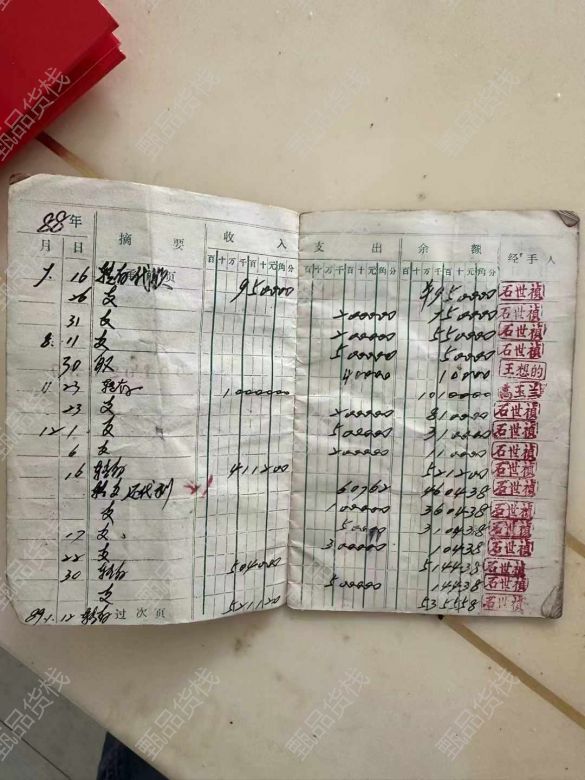 88年
月 日 摘 要 收 入 支 出 余 额 经手人
百十万千百十元角分 百十万千百十元角分 百十万千百十元角分
7. 16 950000 950000 石世禎
26 支 200000 750000 石世禎
31 支 200000 550000 石世禎
8. 11 支 500000 50000 石世禎
30 40000 10000 王想的
11 23 转存 1000000 1010000
23 支 200000 810000 石世禎
12 1 支 500000 310000 石世禎
6 支 200000 110000 石世禎
16 转存 411200 521200 石世禎
转支 60762 460438 石世禎
支 100000 360438 石世禎
支 50000 310438 石世禎
17 支 300000 10438 石世禎
22 支
30 转存 504000 514438 石世禎
支 500000 14438 石世禎
89.1.12 转存 过次页 521120 535558 石世禎
甄品货栈